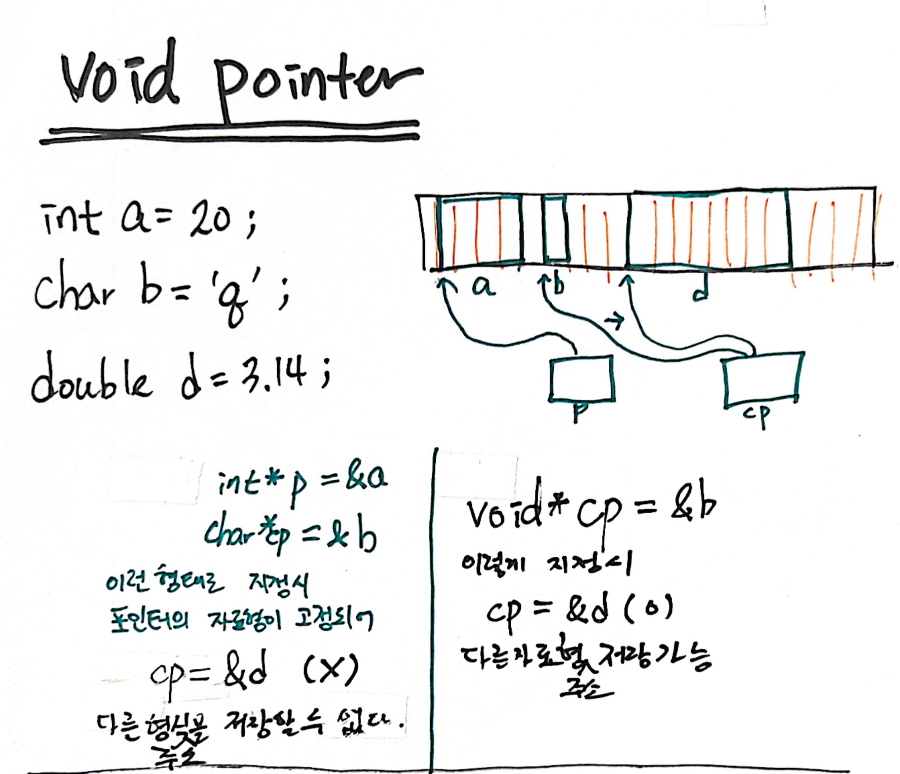 void pointer
int a = 20 ;
char b = 'q' ;
double d = 3.14 ;
a b d
p cp
int* p = &a
char*cp = &b
이런 형태로 지정시
포인터의 자료형이 고정되어
cp = &d (X)
다른 형식을 저장할 수 없다.
주소
void* cp = &b
이렇게 지정시
cp = &d (o)
다른자료형 저장가능
주소